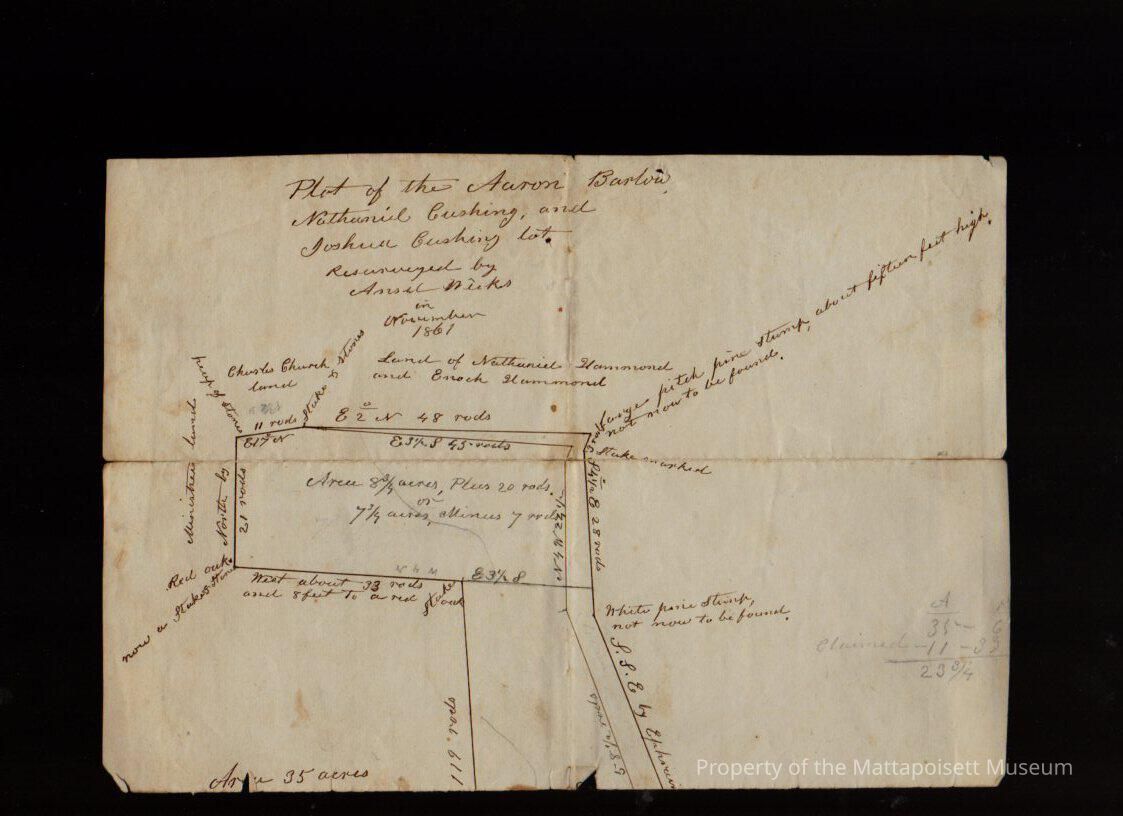 Plot of the Aaron Barlow,
Nathaniel Cushing, and
Joshua Cushing lot.
Resurveyed by
Ansel Weeks
in
November
1861
Charles Church
land
Land of Nathaniel Hammond
and Enoch Hammond
Stake & Stones
heap of stones
Ministree land
11 rods
E 2° N 48 rods
large pitch pine stump, about fifteen feet high,
not now to be found.
E 3½ S 45 rods
Stake marked
North by
21 rods
Area 8¾ acres, Plus 20 rods.
or
7¾ acres, Minus 7 rods
E 28 rods
Red oak
now a Stake & Stone
West about 33 rods
and 8 feet to a red
oak
W 4 N
E 3½ S
White pine Stump,
not now to be found.
S. S. E by Ephraim
119 rods
Area 35 acres
A
35 –
Claimed – 11 –
23 3/4
Property of the Mattapoisett Museum